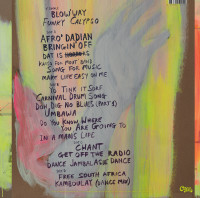 BLOW'WAY
FUNKY CALYPSO
AFRO'DADIAN
BRINGIN' OFF
DAT IS
KAISO FOR MOUT BAND
SONG FOR MUSIC
MAKE LIFE EASY ON ME
TO TINK IT SORF
CARNIVAL DRUM SONG
DOH DIG NO BLUES (PART 1)
UMBAWA
DO YOU KNOW WHERE
YOU ARE GOING TO
IN A MANS LIFE
CHANT
GET OFF THE RADIO
DANCE JAMBALASIE DANCE
FREE SOUTH AFRICA
KAMBOULAY (DANCE MIX)